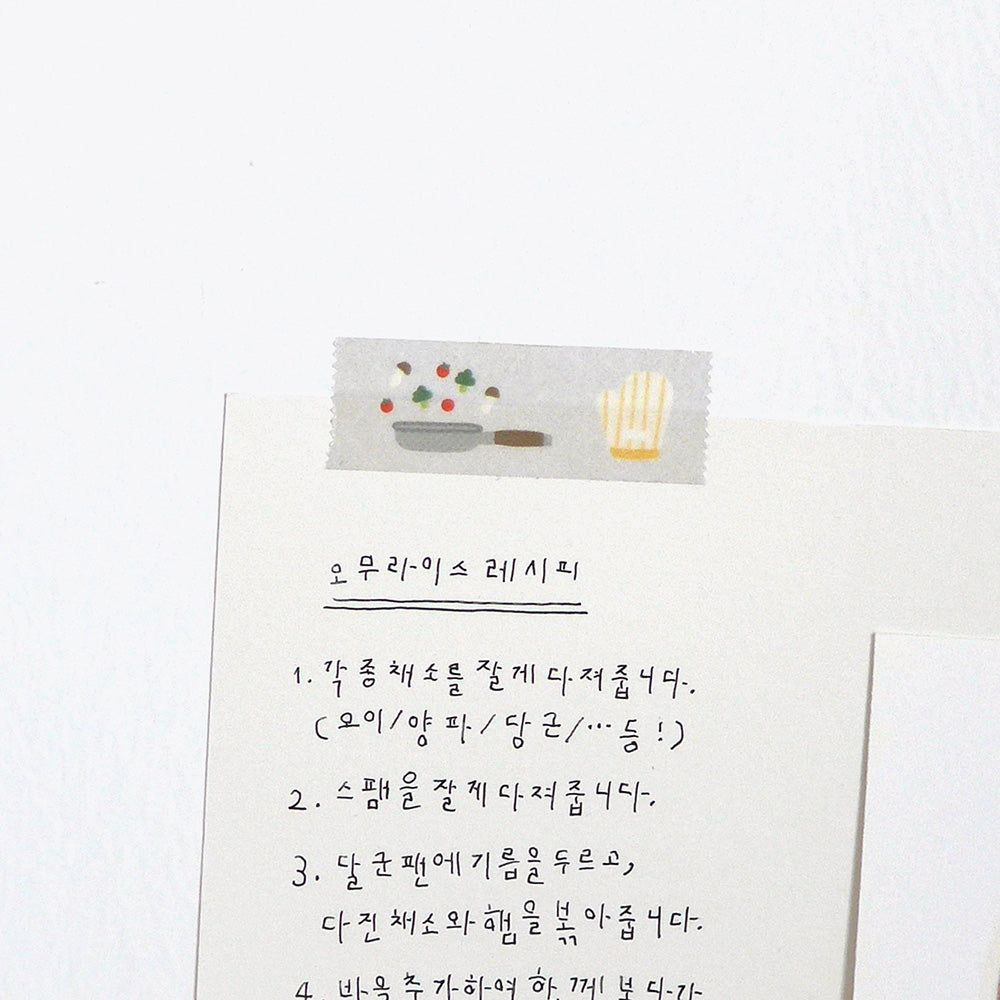 오무라이스 레시피
1. 각종 채소를 잘게 다져줍니다.
(오이/양파/당근/… 등!)
2. 스팸을 잘게 다져줍니다.
3. 달군 팬에 기름을 두르고,
다진 채소와 햄을 볶아줍니다.
4. 밥을 추가하여 함께 볶다가